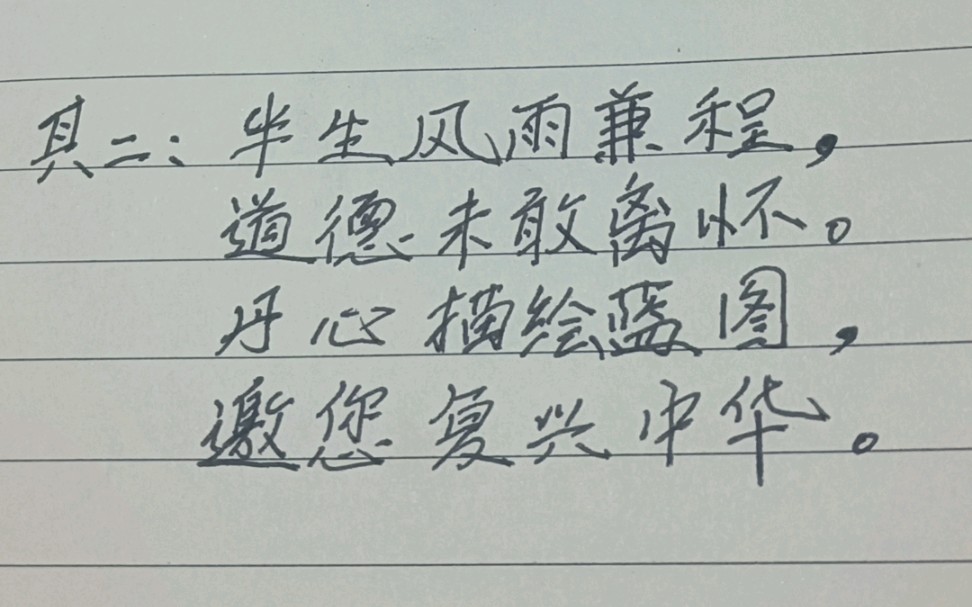 其二：半生风雨兼程，
道德未敢离怀。
丹心描绘蓝图，
邀您复兴中华。